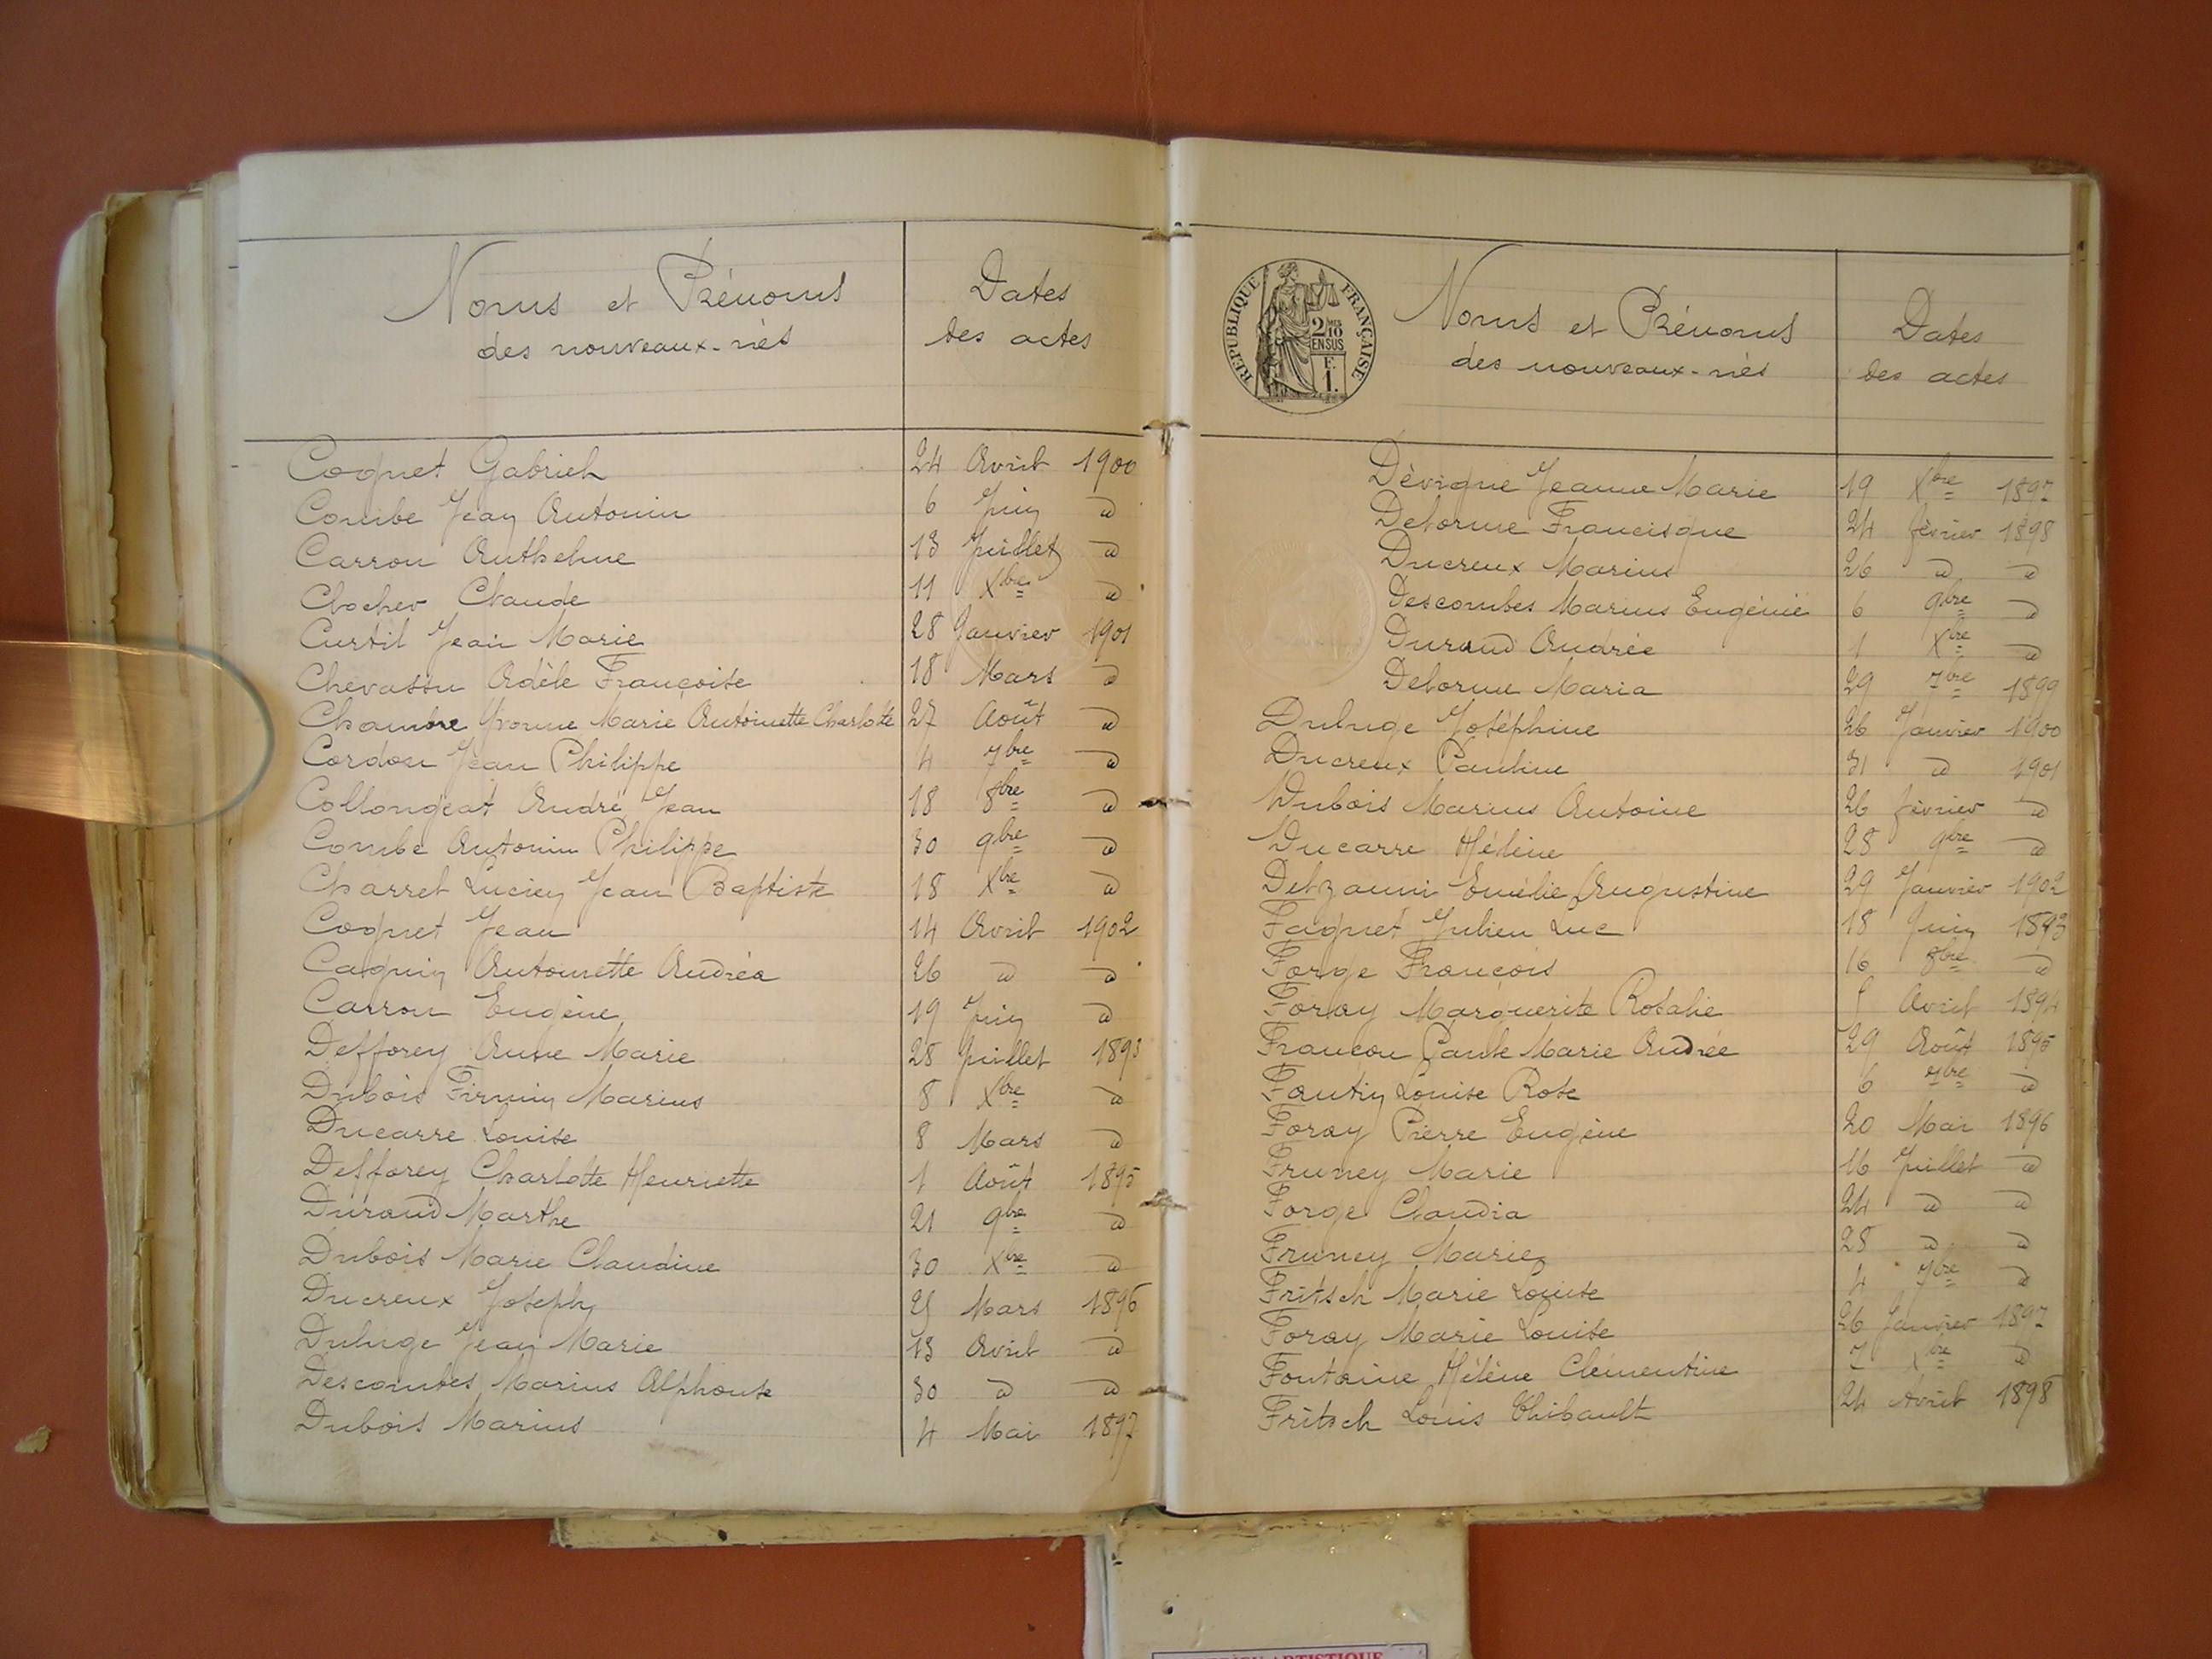 Noms et Prénoms
des nouveaux-nés
Dates
des actes
Coquet Gabriel 24 Avril 1900
Combe Jean Antonin 6 Juin d
Carron Anthelme 13 Juillet d
Clocher Claude 11 Xbre d
Curtil Jean Marie 28 Janvier 1901
Chevassu Adèle Françoise 18 Mars d
Chambre Yvonne Marie Antoinette Charlotte 27 Août d
Cordon Jean Philippe 4 7bre d
Collongeat André Jean 18 8bre d
Combe Antonin Philippe 30 9bre d
Charret Lucien Jean Baptiste 18 Xbre d
Coquet Jean 14 Avril 1902
Caquin Antoinette Andréa 26 d d
Carron Eugène 19 Juin d
Defforey Anne Marie 28 Juillet 1893
Dubois Firmin Marius 8 Xbre d
Ducarre Louise 8 Mars d
Defforey Charlotte Henriette 1 Août 1895
Durand Marthe 21 9bre d
Dubois Marie Claudine 30 Xbre d
Ducreux Joseph 25 Mars 1896
Duluge Jean Marie 13 Avril d
Descombes Marius Alphonse 30 d d
Dubois Marius 4 Mai 1897
RÉPUBLIQUE FRANÇAISE
2/10 EN SUS
F. 1.
Noms et Prénoms
des nouveaux-nés
Dates
des actes
Dévique Jeanne Marie 19 Xbre 1897
Delorme Francisque 24 février 1898
Ducreux Marius 26 d d
Descombes Marius Eugénie 6 9bre d
Durand Andrée 1 Xbre d
Delorme Maria 29 7bre 1899
Duluge Joséphine 26 Janvier 1900
Ducreux Pauline 31 d 1901
Dubois Marius Antoine 26 février d
Ducarre Hélène 28 9bre d
Delzanni Emélie Augustine 29 Janvier 1902
Faquet Julien Luc 18 Juin 1893
Forge François 16 8bre d
Foray Marguerite Rosalie Avril 1894
Francou Paule Marie Andrée 29 Août 1895
Fantin Louise Rose 6 7bre d
Foray Pierre Eugène 20 Mai 1896
Fruney Marie 16 Juillet d
Forge Claudia 24 d d
Fruney Marie 28 d d
Fritsch Marie Louise 4 7bre d
Foray Marie Louise 26 Janvier 1897
Fontaine Hélène Clémentine 7 Xbre d
Fritsch Louis Thibault 24 Avril 1898